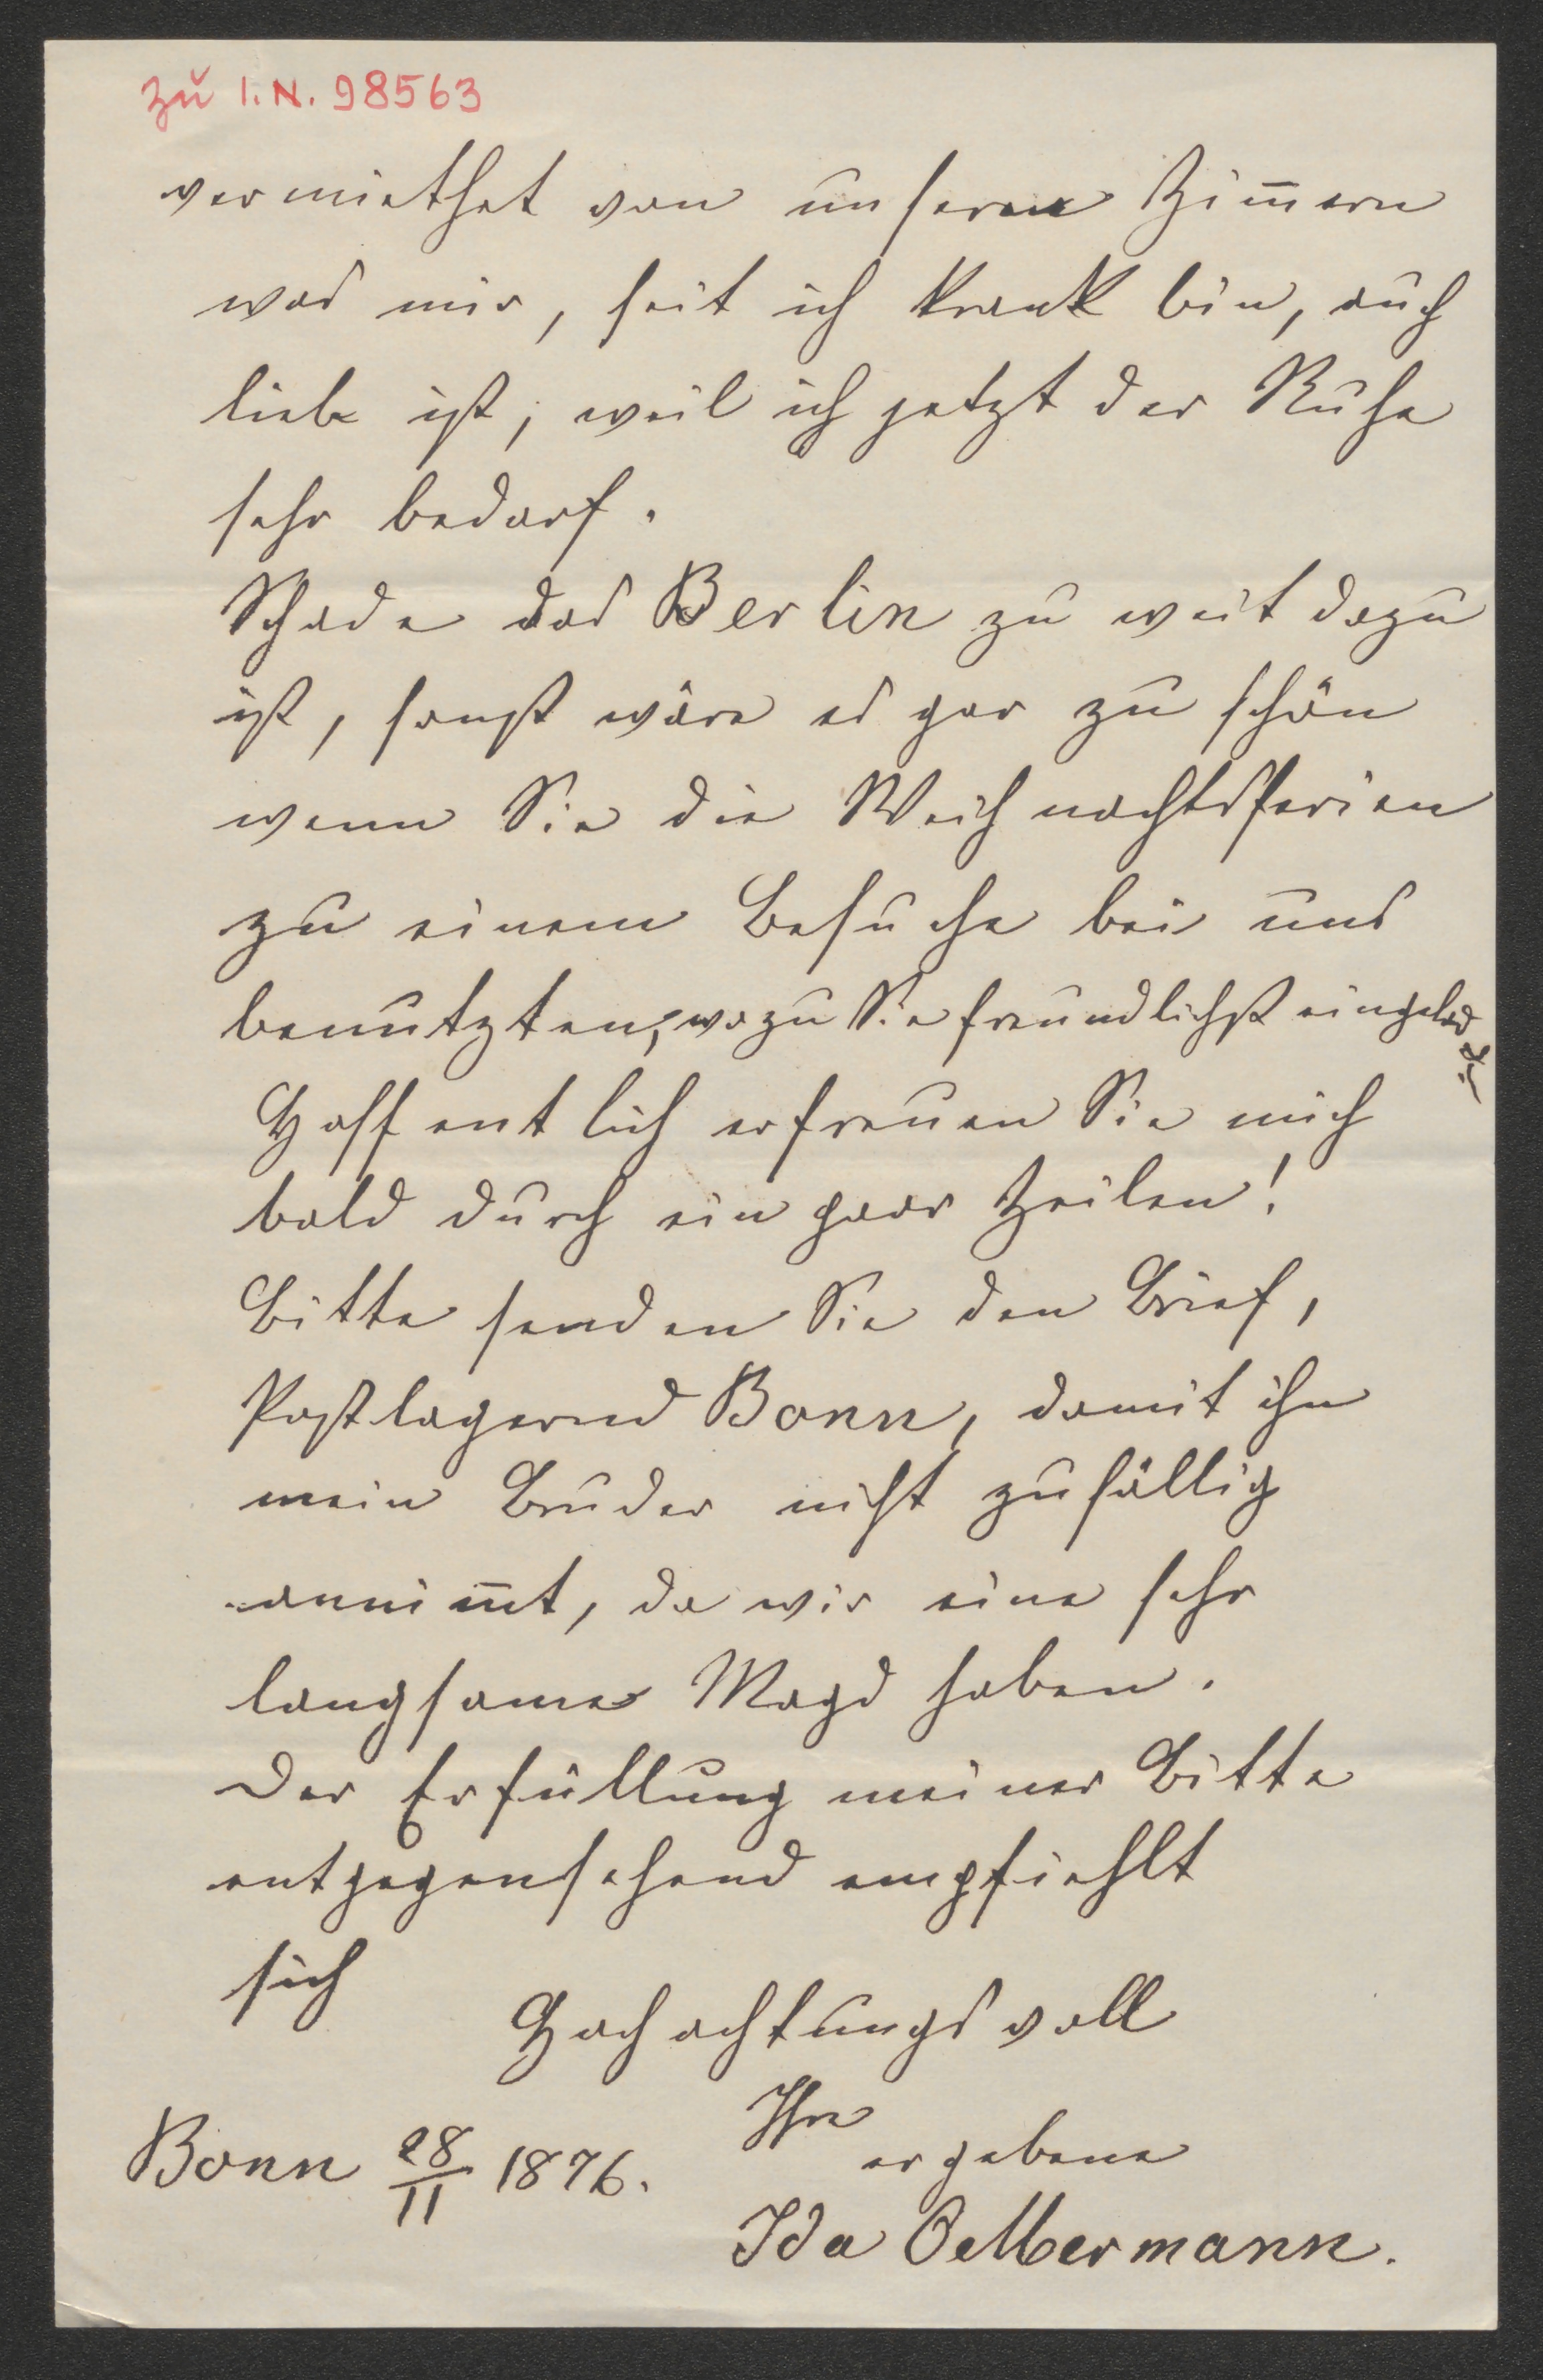 zu I.N. 98563
vermiethet von unseren Zim̄ern
was mir, seit ich krank bin, auch
lieb ist, weil ich jetzt der Ruhe
sehr bedarf.
Schade das Berlin zu weit dazu
ist, sonst wäre es gar zu schön
wenn Sie die Weihnachtsferien
zu einem Besuche bei uns
benutzten, wozu Sie freundlichst eingelad
Hoffentlich erfreuen Sie mich
bald durch ein paar Zeilen!
Bitte senden Sie den Brief,
Postlagernd Bonn, damit ihn
mein Bruder nicht zufällig
annim̄t, da wir eine sehr
langsame Magd haben.
Der Erfüllung meiner Bitte
entgegensehend empfiehlt
sich
Hochachtungsvoll
Ihre
ergebene
Bonn 28/11 1876.
Ida Oelbermann.